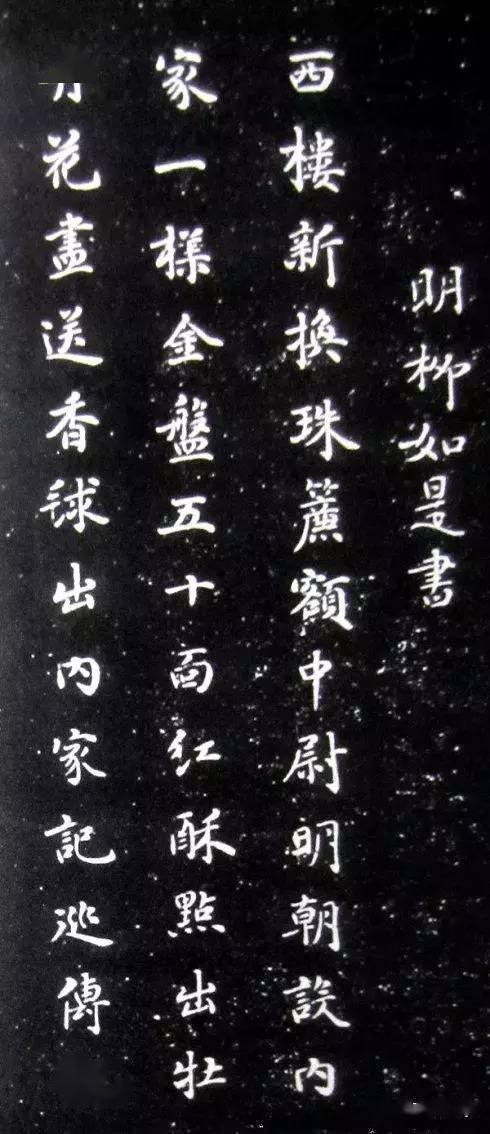 明柳如是書
西樓新換珠簾額中尉明朝設內
家一樣金盤五十面紅酥點出牡
花盡送香球出內家記巡傳